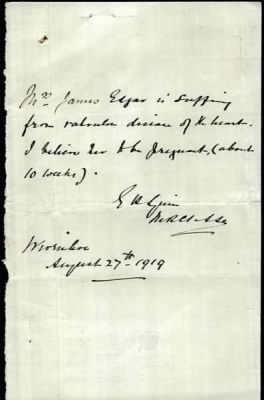 Mrs. James Edgar is suffering
from valvular disease of the heart.
I believe her to be pregnant, (about
10 weeks).
August 27th 1919